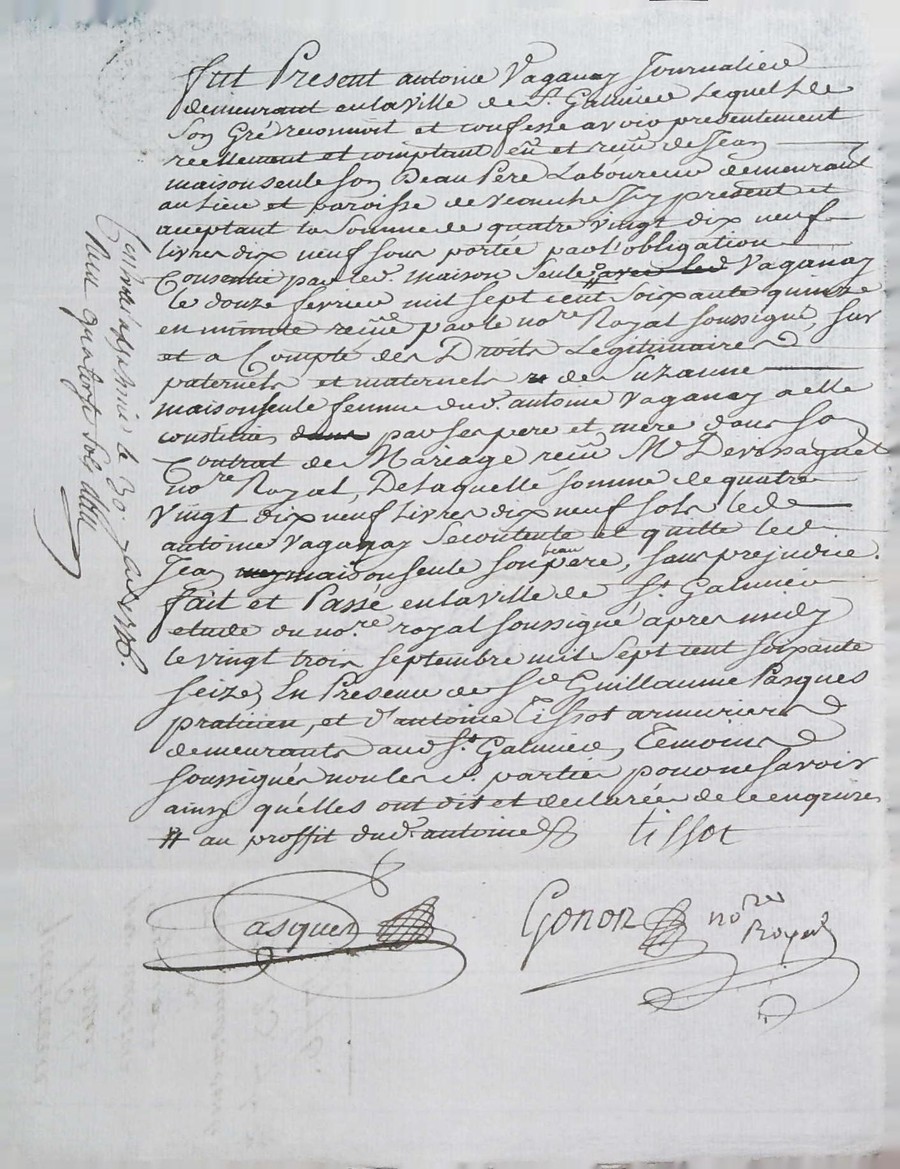 Fut Present antoine Vaganay Journalier
demeurant en la ville de St. Galmier Lequel de
Son Gré reconnoit et confesse avoir presentement
reellement et comptant eu et recu de Jean
maisonseule son Beau Pere Laboureur demeurant
au lieu et paroisse de veauche Icy present et
acceptant la Somme de quatre vingt dix neuf
livres dix neuf sous portée par l'obligation
Consentie par led. maison seule # avec led Vaganay
le douze fevrier mil sept cent Soixante quinze
en minute recue par le nore Royal soussigné, sur
et a Compte des Droits Legitimaires
paternels et maternels de Suzanne
maisonseule femme dud. antoine vaganay a elle
constitués dans par ses pere et mere dans son
Contrat de Mariage recu Me Devissaguet
nore Royal, De laquelle somme de quatre
Vingt dix neuf Livres dix neuf sols led
antoine Vaganay se contente et quitte led
Jean maisonseule son beau pere, sans prejudice.
fait et Passé en la ville de St. Galmier
etude du nore. royal soussigné apres midy
le vingt trois septembre mil Sept cent soixante
seize, En Presence de Sr. Guillaume Pasques
praticien, et d'antoine Tissot armurier
demeurants aud St. Galmier, Temoins
soussignés non les d. parties pour ne savoir
ainsy qu'elles ont dit et declarée de ce enquises
# au proffit dud. antoine tissot
Pasques Gonon nore
Royal
le 30.
Recu quatorze sols